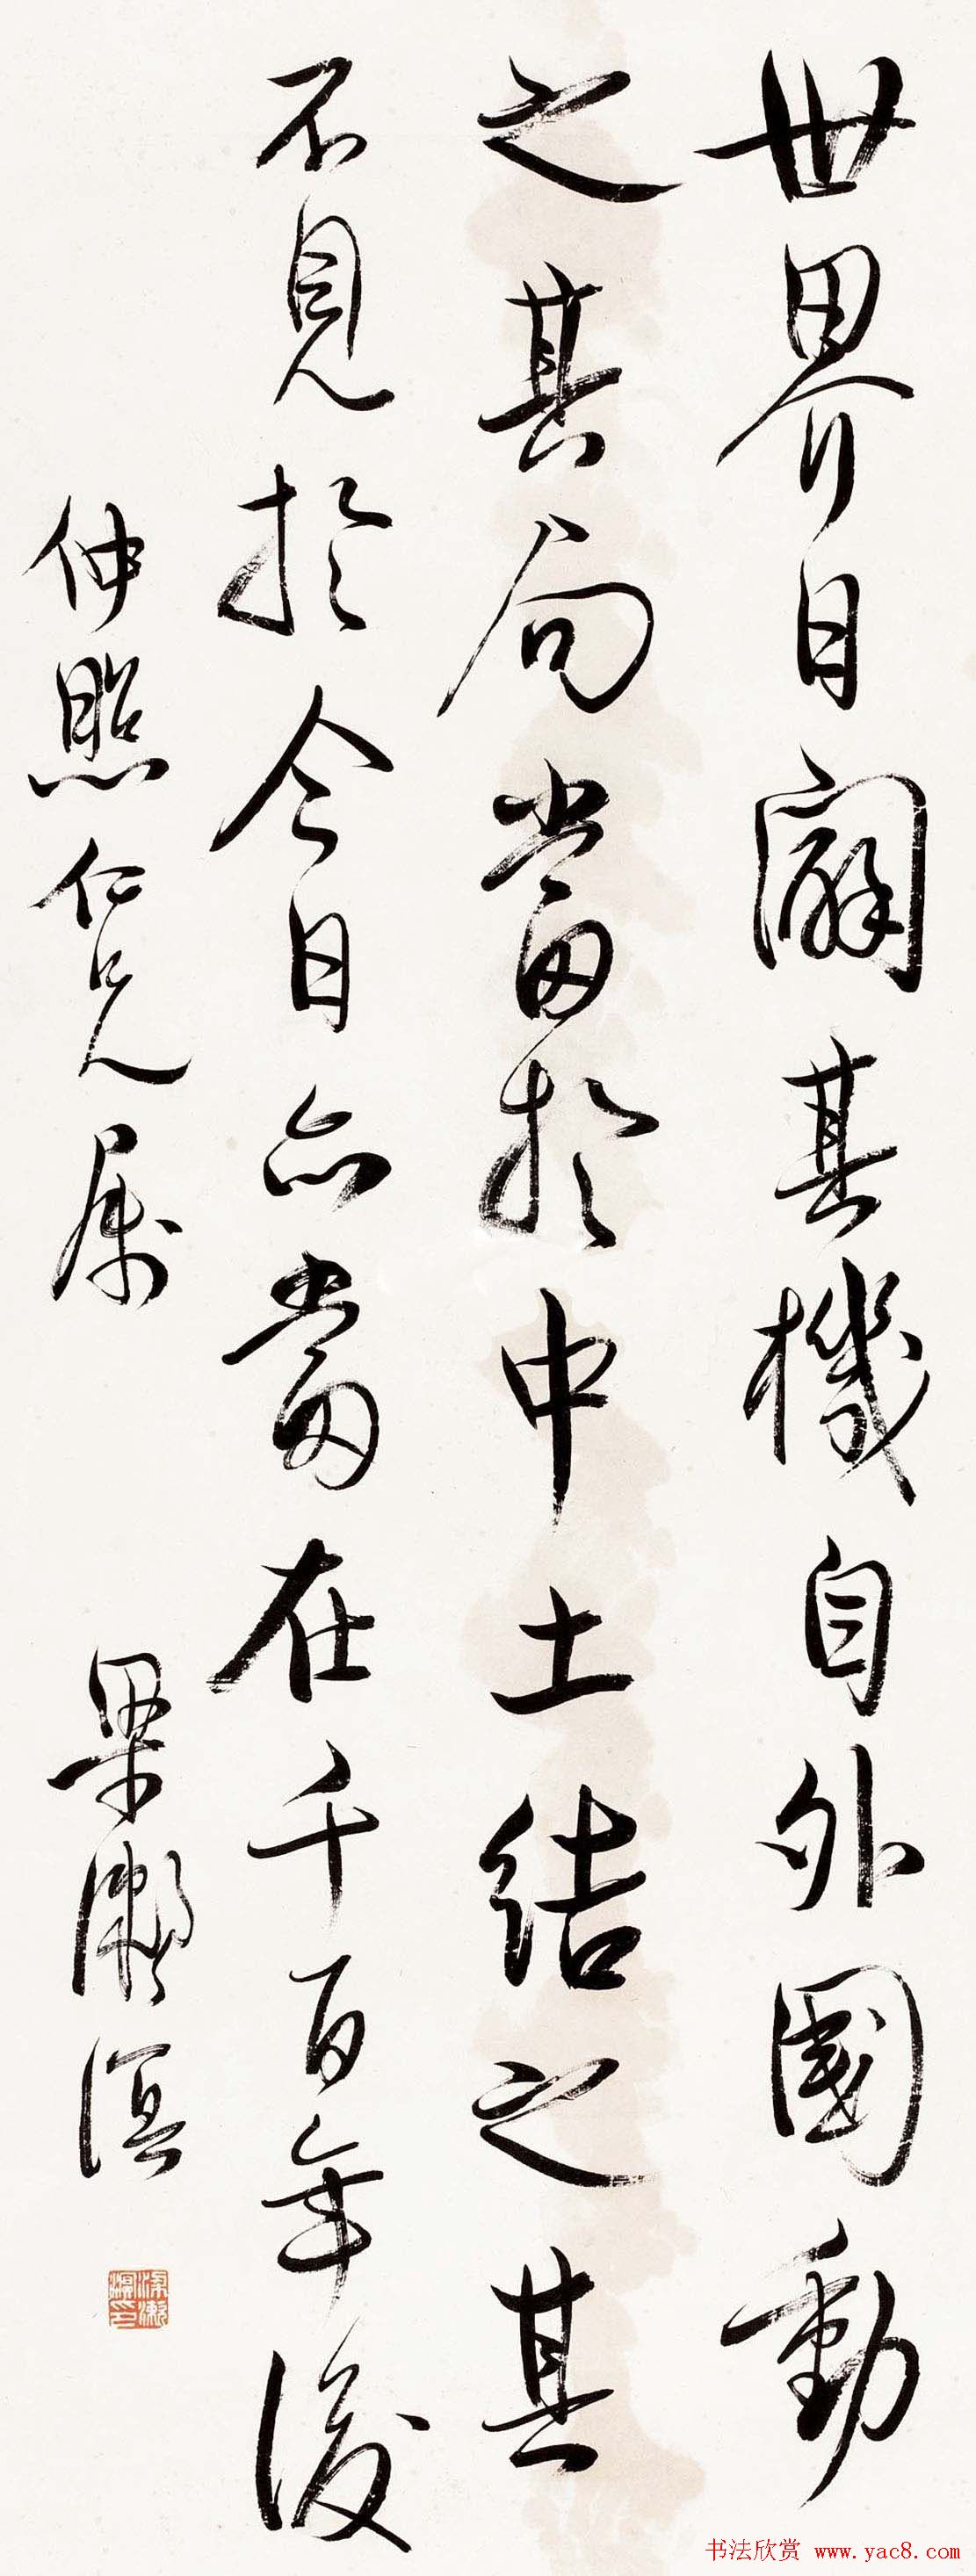 世界日闢其機自外國動
之其局當於中土結之其
不見於今日亦當在千百年後
仲照仁兄属
梁漱溟
梁漱溟印
书法欣赏 www.yac8.com